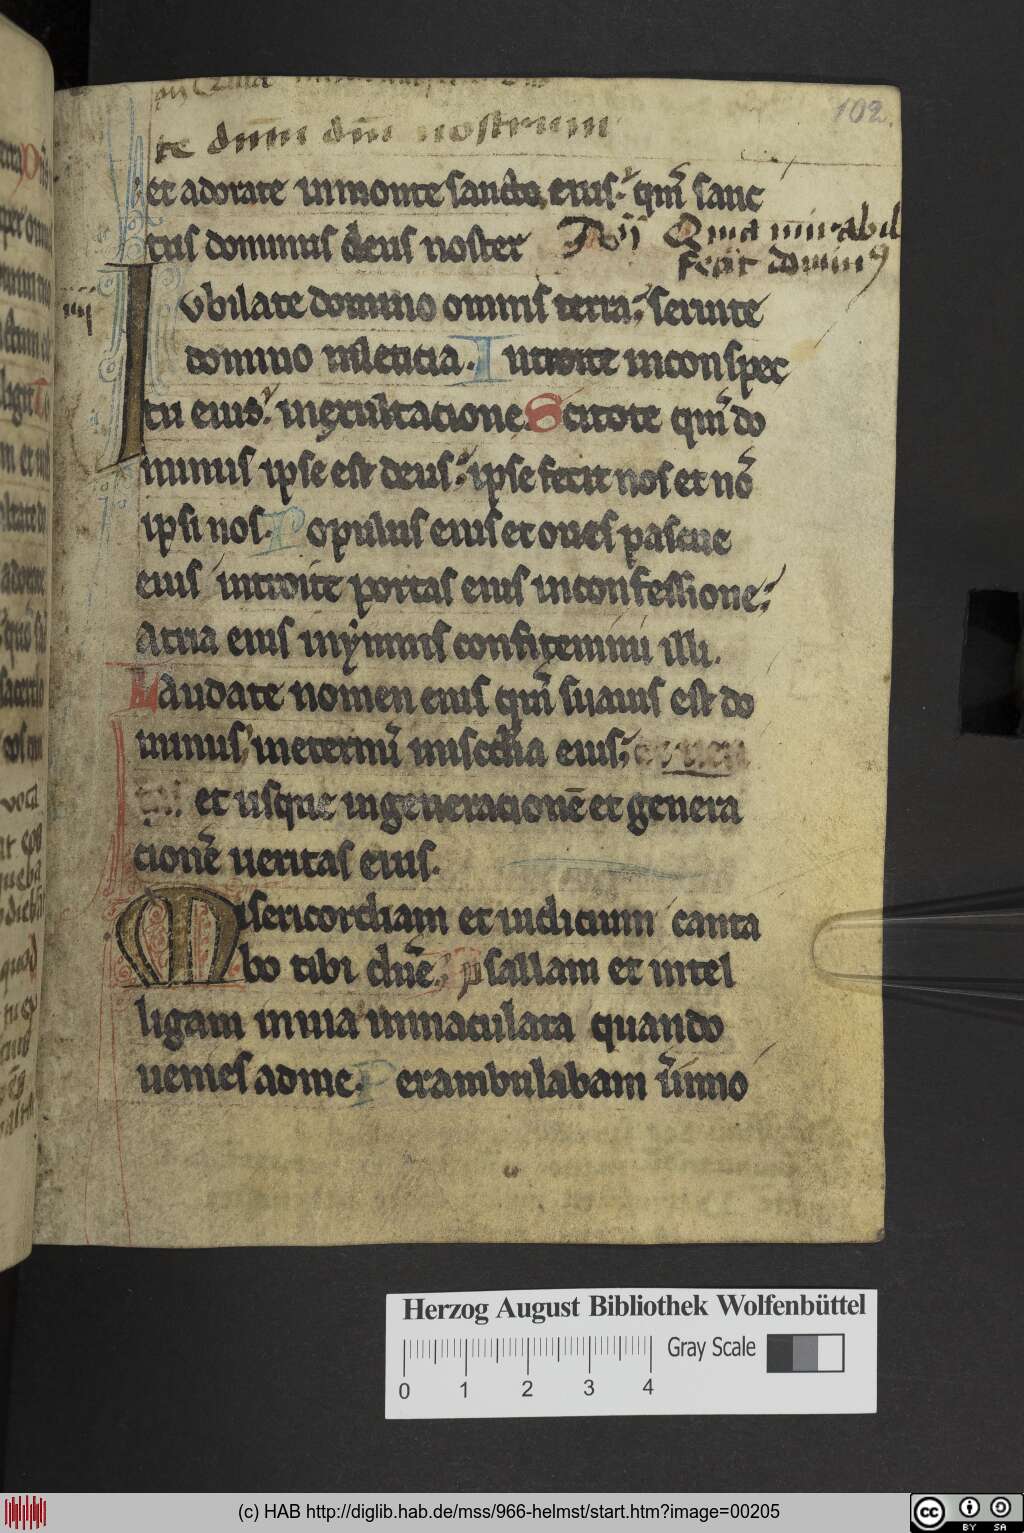 102.
te dnm dm nostrum
et adorate in monte sancto eius. qm sanc
tus dominus deus noster Quia mirabil
fecit dominꝰ
Iubilate domino omnis terra. seruite
domino in leticia. Introite in conspec
tu eius. in exultacione. Scitote qm do
minus ipse est deus. ipse fecit nos et nō
ipsi nos. Populus eius et oues pascue
eius introite portas eius in confessione.
Atria eius in ymnis confitemini illi.
Laudate nomen eius qm suauis est do
minus in eternū miscdia eius,
et usque in generacionē et genera
cionē ueritas eius.
Misericordiam et iudicium canta
bo tibi dne. psallam et intel
ligam in uia inmaculata quando
uenies ad me. Perambulabam in inno
Herzog August Bibliothek Wolfenbüttel
Gray Scale
0 1 2 3 4
(c) HAB http://diglib.hab.de/mss/966-helmst/start.htm?image=00205
cc BY SA